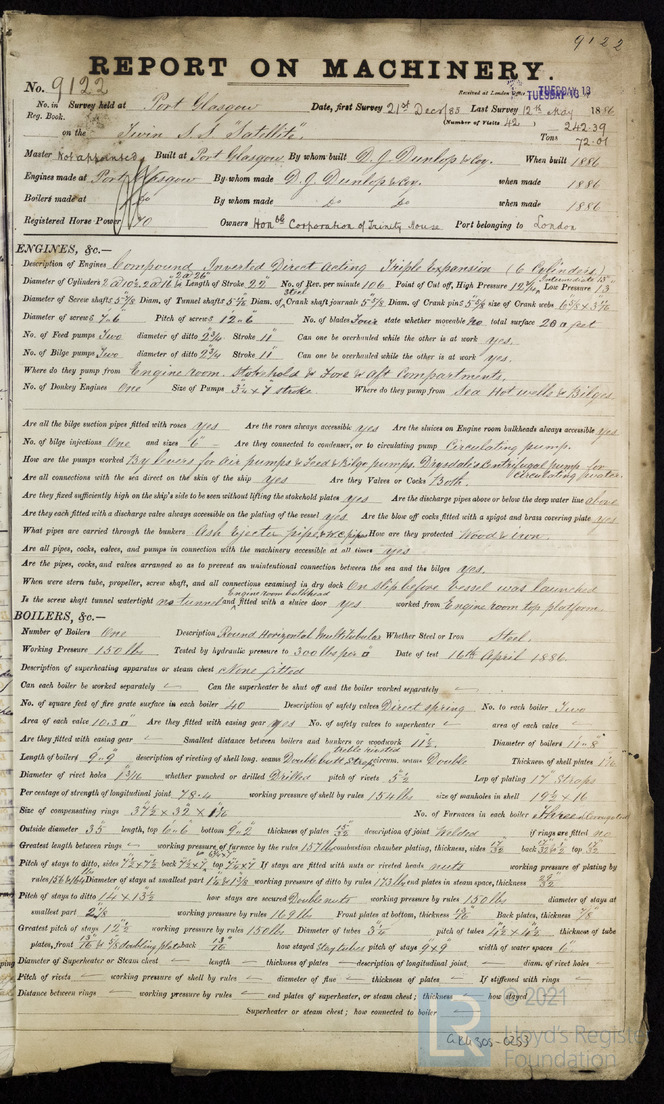 9122
REPORT ON MACHINERY.
No. 9122
Received at London Office TUESDAY 18
TUESDAY 18
No. in Survey held at Port Glasgow Date, first Survey 21st Decr/85 Last Survey 12th May 1886
Reg. Book. (Number of Visits 42)
on the Twin S.S. "Satellite" Tons 242.39
72.01
Master Not appointed Built at Port Glasgow By whom built D. J. Dunlop & Coy. When built 1886
Engines made at Port Glasgow By whom made D. J. Dunlop & Coy. when made 1886
Boilers made at Do By whom made Do Do when made 1886
Registered Horse Power 40 Owners Honble Corporation of Trinity House Port belonging to London
ENGINES, &c.—
Description of Engines Compound Inverted Direct Acting Triple Expansion (6 Cylinders)
Diameter of Cylinders 2 @ 26" Length of Stroke 22" No. of Rev. per minute 106 Point of Cut off, High Pressure Intermediate 15" Low Pressure 13"
Diameter of Screw shaft 5 7/8 Diam. of Tunnel shaft 5 7/8 Diam. of Steel Crank shaft journals 5 7/8 Diam. of Crank pin 5 7/8 size of Crank webs
Diameter of screw 7'6" Pitch of screw 12'0" No. of blades Four state whether moveable No total surface feet
No. of Feed pumps Two diameter of ditto 2 3/4 Stroke 11" Can one be overhauled while the other is at work yes.
No. of Bilge pumps Two diameter of ditto 2 3/4 Stroke 11" Can one be overhauled while the other is at work yes.
Where do they pump from Engine room. Stokehold & Fore & Aft Compartments.
No. of Donkey Engines One Size of Pumps 3 1/4 x 7 stroke Where do they pump from Sea Hot wells & Bilges
Are all the bilge suction pipes fitted with roses yes Are the roses always accessible yes Are the sluices on Engine room bulkheads always accessible yes
No. of bilge injections One and sizes 6" Are they connected to condenser, or to circulating pump Circulating pump.
How are the pumps worked By levers for air pumps & Feed & Bilge pumps. Drysdale's Centrifugal pump for circulating water.
Are all connections with the sea direct on the skin of the ship yes Are they Valves or Cocks Both.
Are they fixed sufficiently high on the ship's side to be seen without lifting the stokehold plates yes Are the discharge pipes above or below the deep water line above
Are they each fitted with a discharge valve always accessible on the plating of the vessel yes Are the blow off cocks fitted with a spigot and brass covering plate yes
What pipes are carried through the bunkers Ash Ejector pipe & W.C. pipe How are they protected Wood & iron.
Are all pipes, cocks, valves, and pumps in connection with the machinery accessible at all times yes
Are the pipes, cocks, and valves arranged so as to prevent an unintentional connection between the sea and the bilges yes.
When were stern tube, propeller, screw shaft, and all connections examined in dry dock On slip before vessel was launched
Is the screw shaft tunnel watertight no tunnel and Engine room bulkhead fitted with a sluice door yes worked from Engine room top platform.
BOILERS, &c.—
Number of Boilers One Description Round Horizontal Multitubular Whether Steel or Iron Steel.
Working Pressure 150 lbs Tested by hydraulic pressure to 300 lbs per □" Date of test 16th April 1886.
Description of superheating apparatus or steam chest None fitted
Can each boiler be worked separately — Can the superheater be shut off and the boiler worked separately —
No. of square feet of fire grate surface in each boiler 40 Description of safety valves Direct spring No. to each boiler Two
Area of each valve 10.3 □" Are they fitted with easing gear yes No. of safety valves to superheater — area of each valve —
Are they fitted with easing gear — Smallest distance between boilers and bunkers or woodwork 11 1/2 Diameter of boilers 11'0"
Length of boilers 9'9" description of riveting of shell long. seams Double butt straps treble riveted circum. seams Double Thickness of shell plates
Diameter of rivet holes 1 3/16 whether punched or drilled Drilled pitch of rivets 5 1/2 Lap of plating 17" Straps
Per centage of strength of longitudinal joint 78.4 working pressure of shell by rules 154 lbs size of manholes in shell 19 1/2 x 16
Size of compensating rings 37 1/2 x 32 x No. of Furnaces in each boiler Three Corrugated
Outside diameter 35 length, top 6'6" bottom 9'2" thickness of plates 15/32 description of joint Welded if rings are fitted no
Greatest length between rings — working pressure of furnace by the rules 157 lbs combustion chamber plating, thickness, sides 17/32 back top
Pitch of stays to ditto, sides 7 1/2 x 7 1/2 back 7 1/2 x 7 top If stays are fitted with nuts or riveted heads nuts working pressure of plating by
rules 156 & 164 lbs Diameter of stays at smallest part working pressure of ditto by rules 173 lbs end plates in steam space, thickness
Pitch of stays to ditto 14 x 13 1/2 how stays are secured Double nuts working pressure by rules 150 lbs diameter of stays at
smallest part 2 1/8 working pressure by rules 169 lbs Front plates at bottom, thickness Back plates, thickness 7/8
Greatest pitch of stays 12 1/2 working pressure by rules 150 lbs Diameter of tubes pitch of tubes 4 1/2 x 4 1/2 thickness of tube
plates, front doubling plate back 13/16 how stayed Stay tubes pitch of stays 9 x 9 width of water spaces 6"
Diameter of Superheater or Steam chest — length — thickness of plates — description of longitudinal joint — diam. of rivet holes —
Pitch of rivets — working pressure of shell by rules — diameter of flue — thickness of plates — If stiffened with rings —
Distance between rings — working pressure by rules — end plates of superheater, or steam chest; thickness — how stayed
Superheater or steam chest; how connected to boiler —
© 2021
LR
Lloyd's Register
Foundation